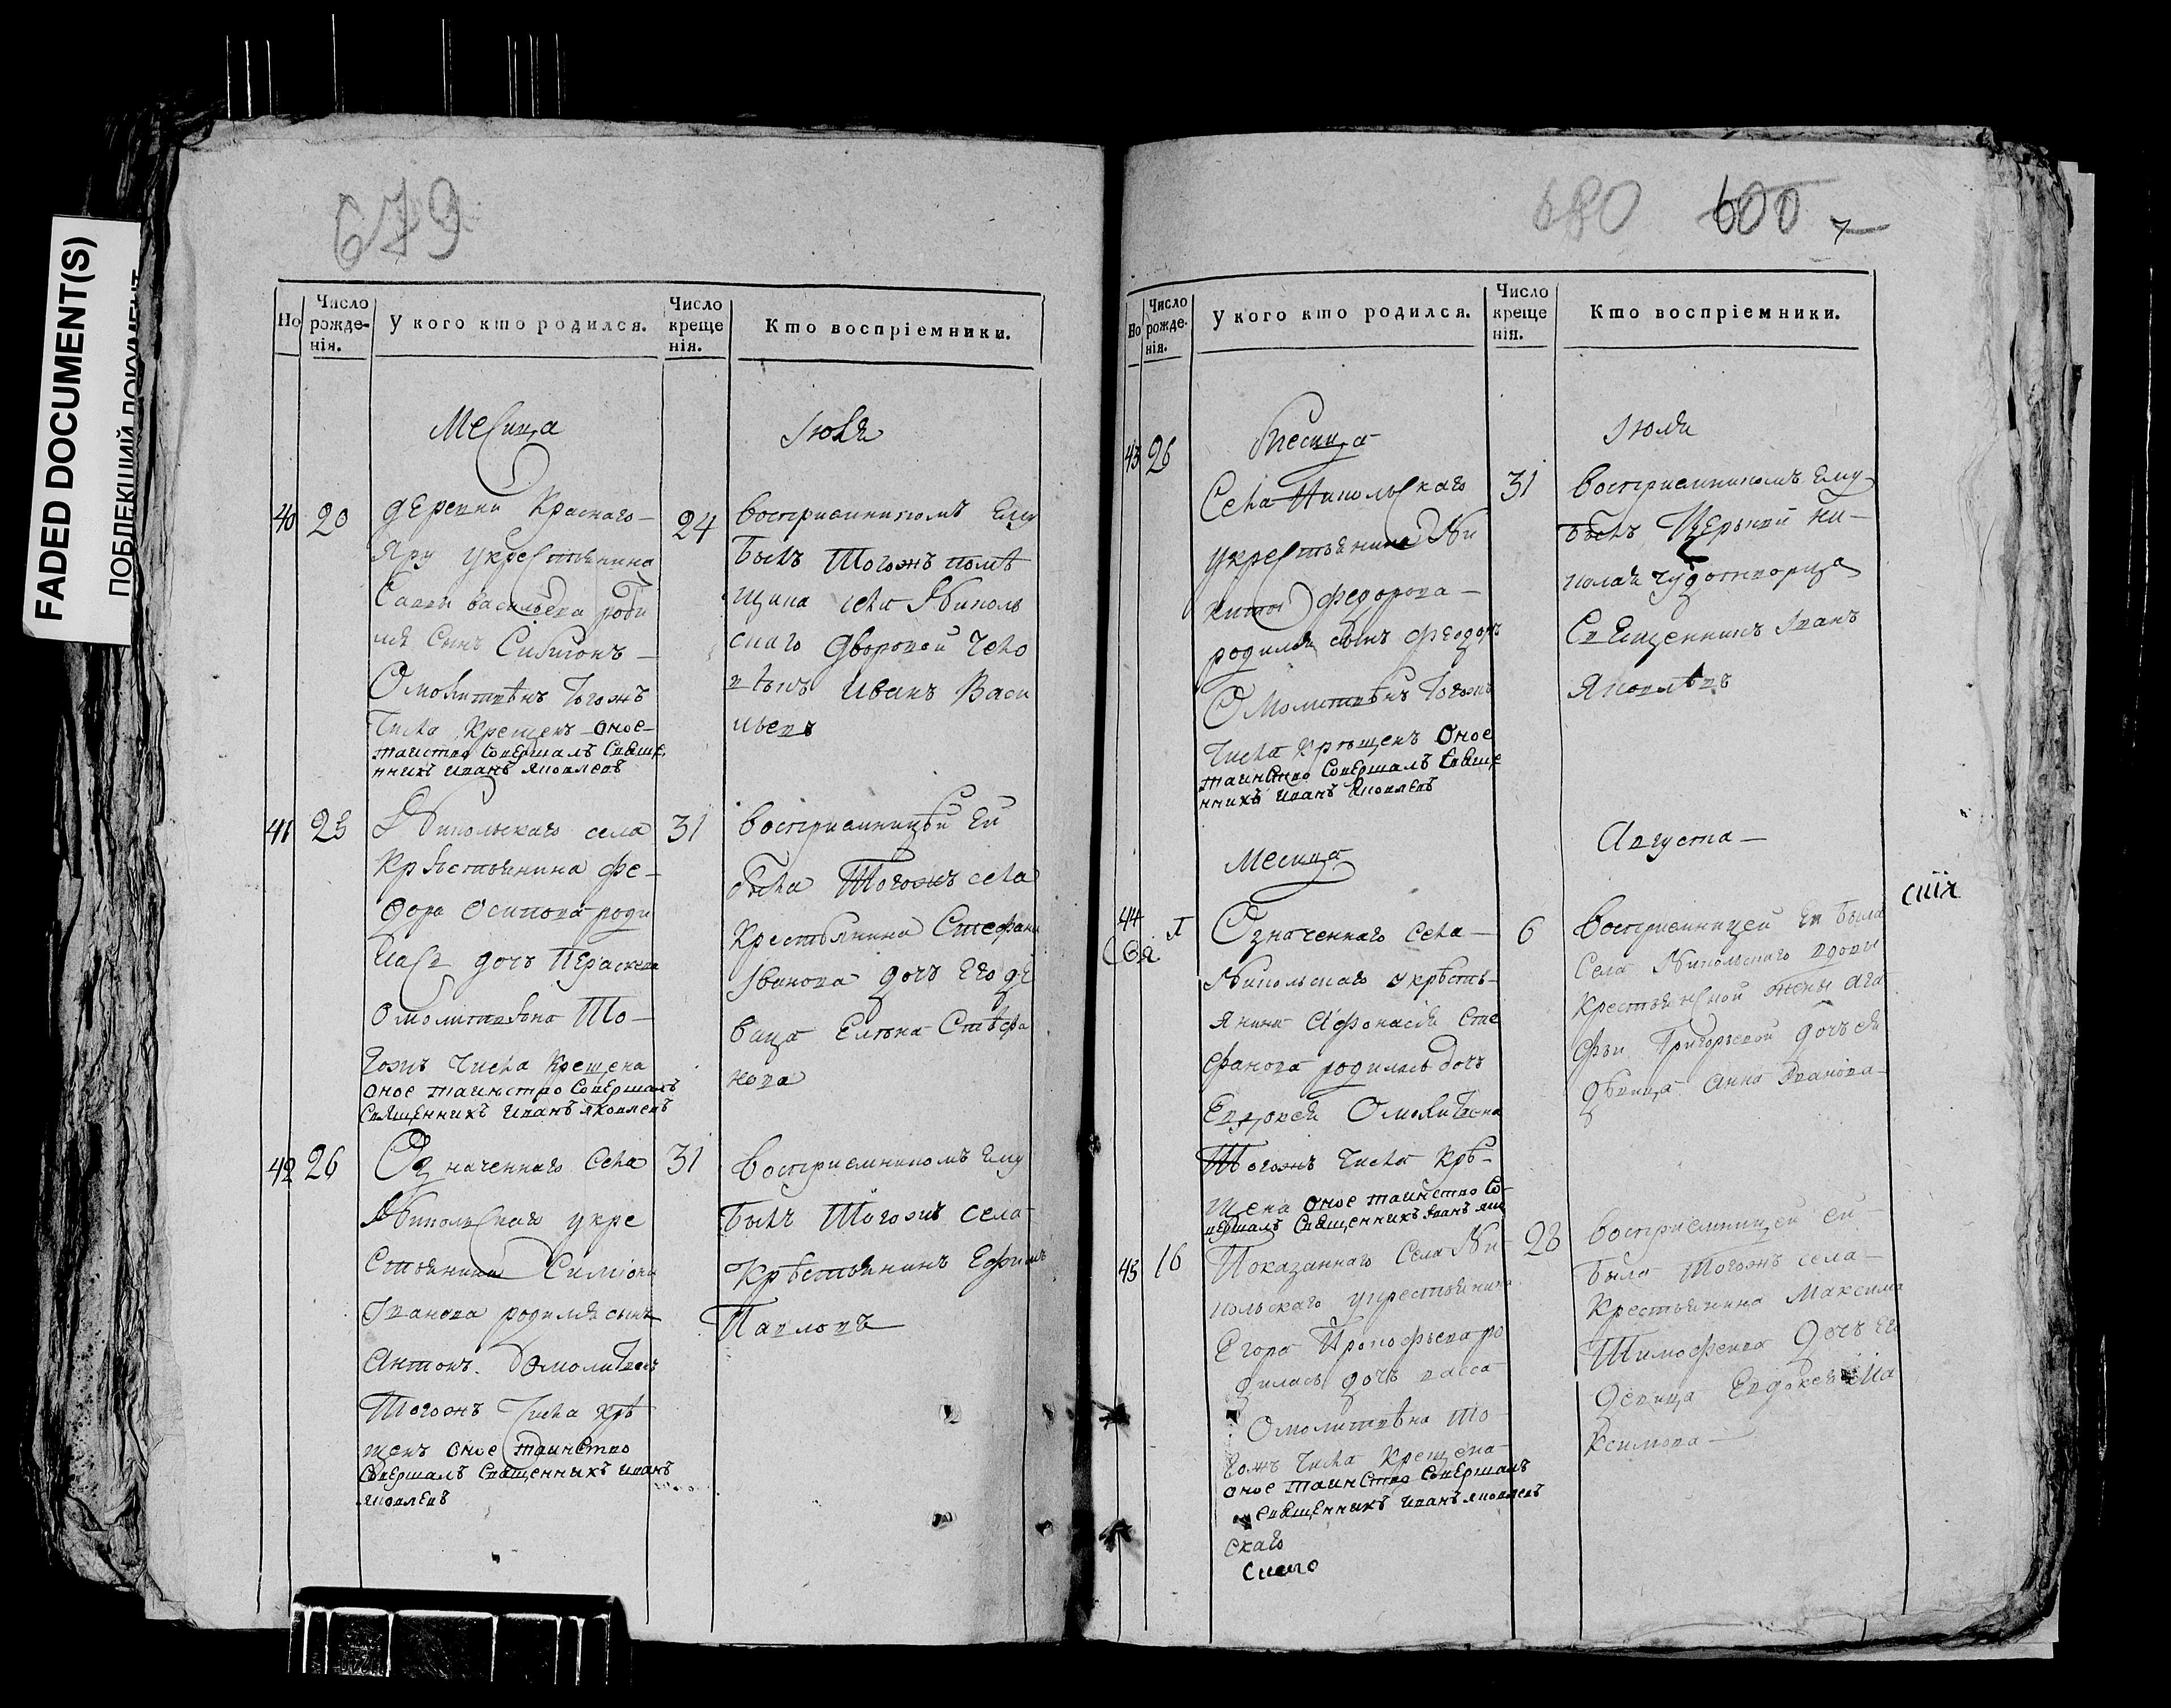 FADED DOCUMENT(S)
ПОБЛЕКШИЙ ДОКУМЕНТ
679
Но
Число рожде-нія.
У кого кто родился.
Число креще нія.
Кто воспріемники.
Месица
Июля
40 20
деревни Краснаго
Яру укрестьянина
Савы васильева роди
ля Сынъ Симионъ
Омолитвенъ тогожъ
Числа Крещенъ оное
таиство Совершалъ Свяще
нникъ иванъ яковлевъ
24
восприемникомъ Ему
былъ Тогожъ поме
щика села Николь
скаго дворовой чело
векъ иванъ Васи
льевъ
41 23
Никольскаго села
Крестьянина фе
дора осипова роди
лась дочь Параскева
омолитвена То
гожъ числа Крещена
оное таинство Совершалъ
Священникъ иванъ яковлевъ
31
восприемницей Ей
была Тогожъ села
Крестьянина Стефана
Иванова дочь Его де
вица Елена Стефа
нова
42 26
Означеннаго села
Никольскаго укре
стьянина Симиона
Иванова родился сынъ
Антонъ Омолитвенъ
Тогожъ Числа кре
щенъ оное таинство
Совершалъ Священникъ иванъ
яковлевъ
31
восприемникомъ Ему
былъ Тогожъ села
Крестьянинъ Ефимъ
Павловъ
680 600 7
Но
Число рожде-нія.
У кого кто родился.
Число креще нія.
Кто воспріемники.
Месица
Июля
43 26
Села Никольскаго
укрестьянина Ни
киты федорова
родился сынъ феодоръ
Омолитвенъ Тогожъ
Числа Крещенъ Оное
таинство Совершалъ Свяще
нникъ иванъ яковлевъ
31
восприемникомъ Ему
былъ Церькви Ни
колая чудотворца
Священникъ Иванъ
Яковлевъ
Месица
Августа
44
Означеннаго села
Никольскаго укресть
янина Афонасия Сте
фанова родилась дочь
Евдокея Омолитвена
Тогожъ Числа Кре
щена оное таинство Со
вершалъ Священникъ Иванъ яко
6
восприемницей Ей была
Села Никольскаго вдовы
Крестьянской жены Ага
фьи Григорьевой дочь ея
девица Анна Иванова
45 16
Показаннаго Села Ни
кольскаго укрестьянина
Егора Прокофьева ро
дилась дочь васса
Омолитвена то
гожъ Числа Крещена
оное таинство Совершалъ
священникъ иванъ яковлевъ
скаго
28
восприемницей ей
была тогожъ села
Крестьянина Максима
Тимофеева дочь Его
девица Евдокея Ма
ксимова